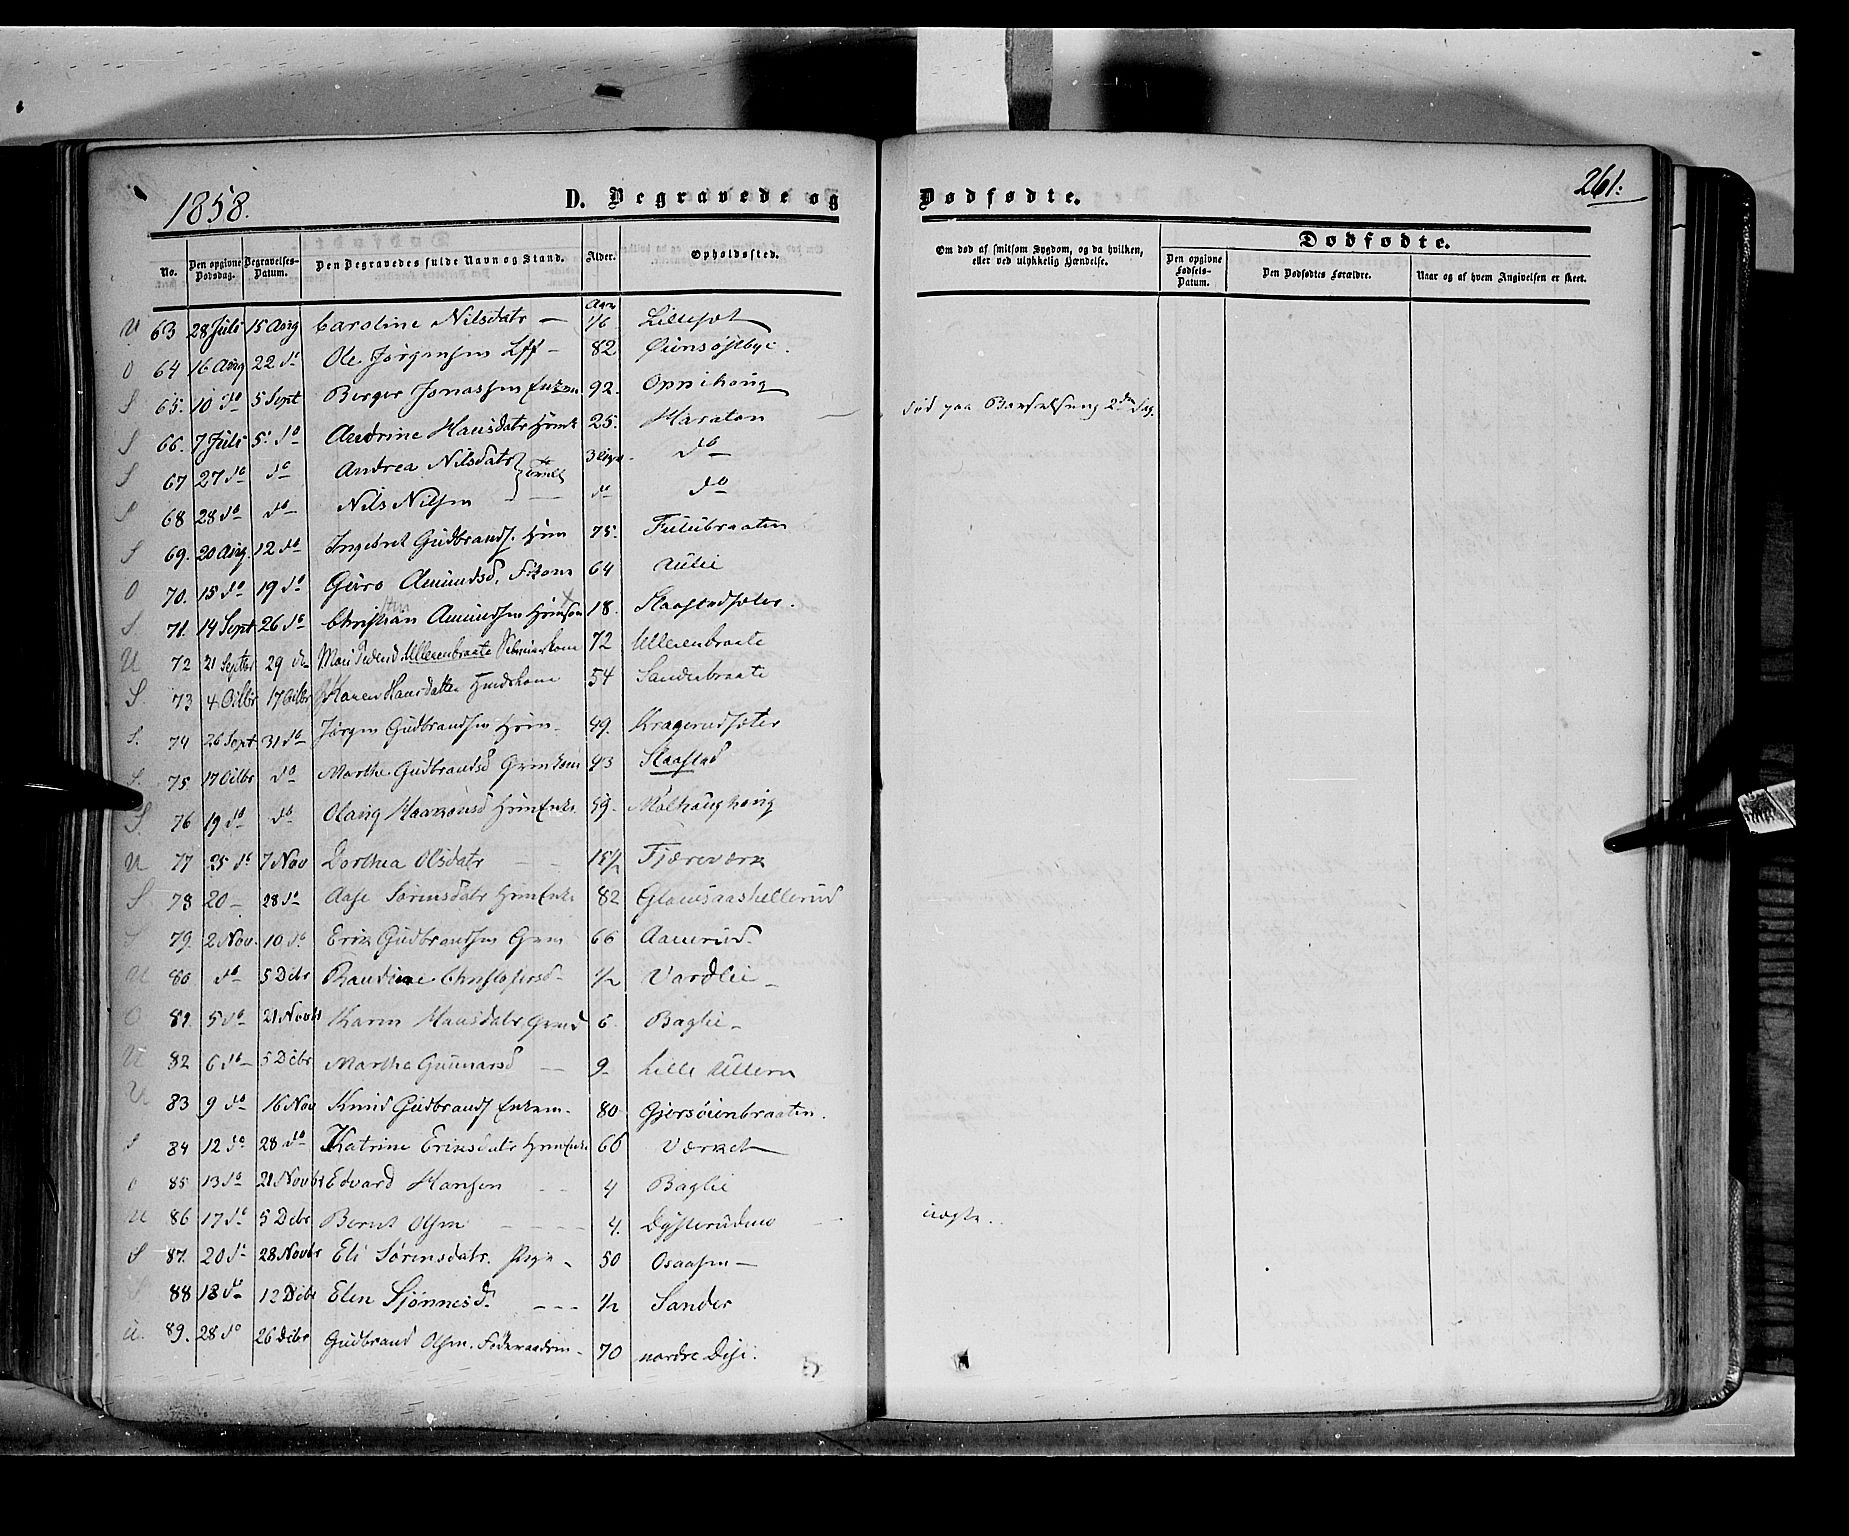 1858.
D. Begravede og Dødfødte.
261.
No.
Den opgivne Dødsdag.
Begravelses-Datum.
Den Begravedes fulde Navn og Stand.
Alder.
Opholdssted.
Om død af smitsom Sygdom, og da hvilken, eller ved ulykkelig Hændelse.
Dødfødte.
Den opgivne Fødsels-Datum.
Den Dødfødtes Forældre.
Naar og af hvem Angivelsen er skeet.
U 63 28 Juli 15 Aug Caroline Nilsdatr — Aar 1/6
O 64 16 Aug 22 do Ole Jørgensen 82
S 65. 10 do 5 Sept Berger Jonassen Enkem 92. Oppihaug
S 66. 7 Juli 5' do Andrine Hansdatr 25. Haraton — død paa Barselseng 2den Dag.
S 67 27 do do Andrea Nilsdatr 3 do
S 68 28 do do Nils Nilsen do do
S 69. 20 Aug. 12 do Ingebret Gudbrands. Hmn 75. Fulubraaten
O 70. 15 do 19 do Guro Amundsd. 64 Aulie
S 71. 14 Sept 26 do Christian Amundsen Hmnsøn 18. Slaastadsæter.
U 72 21 Septbr 29 do Mari Pedersd. Ullerenbraate 72 Ullerenbraate
S. 73 4 Octbr 17 Octbr Karen Hansdatter 54 Sanderbraate
S. 74 26 Sept 31 do Jørgen Gudbrandsen Hmn 49. Kragerudsæter
S. 75 17 Octbr do Marthe Gudbrandsd 43 Slaastad
S. 76 19 do do Olaug Haakonsd Hmn Enke 59.
U 77 25 do 7 Nov Dorthea Olsdatr 15 1/2 Fjøreværk
S 78 20 — 28 do Aase Sørensdatr Hmn Enke 82
S 79. 2 Nov. 10 do Erik Gudbrandsen Grmn 66 Aamerud.
U 80 do 5 Dcbr Randine Christofersd 1/2 Vardlie —
O 81. 5 do 21 Novbr Karen Hansdatr 6. Baglie —
U 82 6 do 5 Dcbr Marthe Gunnarsd — 9 Lille Ullern
U 83 9 do 16 Nov Knud Gudbrands Enkem. 80 Gjersøienbraaten.
S 84 12 do 28 do Katrine Eriksdatr Hmn Enke 66 Værket
O 85 13 do 21 Novbr Edvard Hansen 4 Baglie
U 86 17 do 5 Dcbr Bernt Olsen 4. Dysterudmo — uægte.
S 87. 20 do 28 Novbr Eli Sørensdatr. Pige 50 Osaasen —
S 88 18 do 12 Dcbr Elen Sjønnesd. 1/2 Sander
U. 89. 28 do 26 Dcbr Gudbrand Olsen. Føderaadsm. 70 nordre Disi.